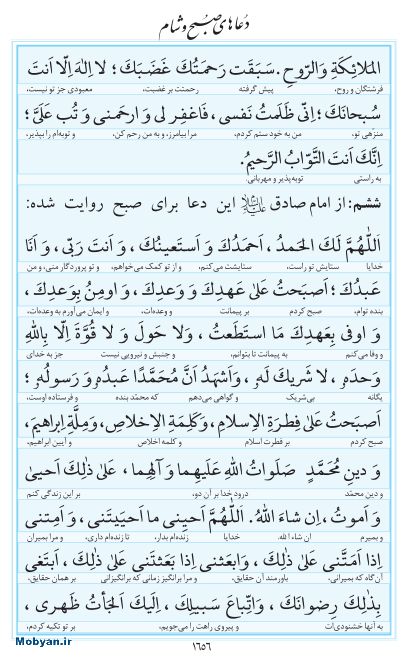 دعاهای صبح و شام
المَلائِکَةِ وَالرّوحِ. سَبَقَت رَحمَتُكَ غَضَبَكَ؛ لا اِلهَ اِلّا اَنتَ
فرشتگان و روح، پیش گرفته رحمتت بر غضبت، معبودی جز تو نیست،
سُبحانَكَ؛ اِنّی ظَلَمتُ نَفسی، فَاغفِر لی وَ ارحَمنی وَ تُب عَلَیَّ؛
منزّهی تو، من به خود ستم کردم، مرا بیامرز، و به من رحم کن، و توبه‌ام را بپذیر،
اِنَّكَ اَنتَ التَّوّابُ الرَّحیمُ.
به راستی توبه‌پذیر و مهربانی.
ششم: از امام صادق علیه‌السلام این دعا برای صبح روایت شده:
اَللّهُمَّ لَكَ الحَمدُ، اَحمَدُكَ وَ اَستَعینُكَ، وَ اَنتَ رَبّی، وَ اَنَا
خدایا ستایش تو راست، ستایشت می‌کنم، و از تو کمک می‌خواهم، و تو پروردگار منی، و من
عَبدُكَ؛ اَصبَحتُ عَلىٰ عَهدِكَ وَ وَعدِكَ، وَ اومِنُ بِوَعدِكَ،
بنده توام، صبح کردم بر پیمانت و وعده‌ات، و ایمان می‌آورم به وعده‌ات،
وَ اوفی بِعَهدِكَ مَا استَطَعتُ، وَلا حَولَ وَ لا قُوَّةَ اِلّا بِاللّهِ
و وفا می‌کنم به پیمانت تا بتوانم، و جنبش و نیرویی نیست جز به خدای
وَحدَهٗ، لا شَریكَ لَهٗ، وَاَشهَدُ اَنَّ مُحَمَّدًا عَبدُهٗ وَ رَسولُهٗ؛
یگانه بی‌شریک و گواهی می‌دهم که محمّد بنده و فرستاده اوست،
اَصبَحتُ عَلىٰ فِطرَةِ الاِسلامِ، وَکَلِمَةِ الاِخلاصِ، وَمِلَّةِ اِبراهیمَ،
صبح کردم بر فطرت اسلام و کلمه اخلاص و آیین ابراهیم،
وَ دینِ مُحَمَّدٍ صَلَواتُ اللّهِ عَلَیهِما وَ آلِهِما، عَلىٰ ذلِكَ اَحیىٰ
و دین محمّد درود خدا بر آن دو، بر این زندگی کنم
وَ اَموتُ، اِن شاءَ اللّهُ. اَللّهُمَّ اَحیِنی ما اَحیَیتَنی، وَ اَمِتنی
و بمیرم ان شاء الله. خدایا زنده‌ام بدار، تا زنده‌ام داری، و مرا بمیران
اِذا اَمَتَّنی عَلىٰ ذلِكَ، وَابعَثنی اِذا بَعَثتَنی عَلىٰ ذلِكَ، اَبتَغی
آن‌گاه که بمیرانی، باورمند آن حقایق، و مرا برانگیز زمانی که برانگیزانی بر همان حقایق،
بِذلِكَ رِضوانَكَ، وَاتِّباعَ سَبیلِكَ، اِلَیكَ اَلجَأتُ ظَهری،
به آنها خشنودی‌ات و پیروی راهت را می‌جویم، بر تو تکیه کردم،
۱۶۵۶
Mobyan.ir